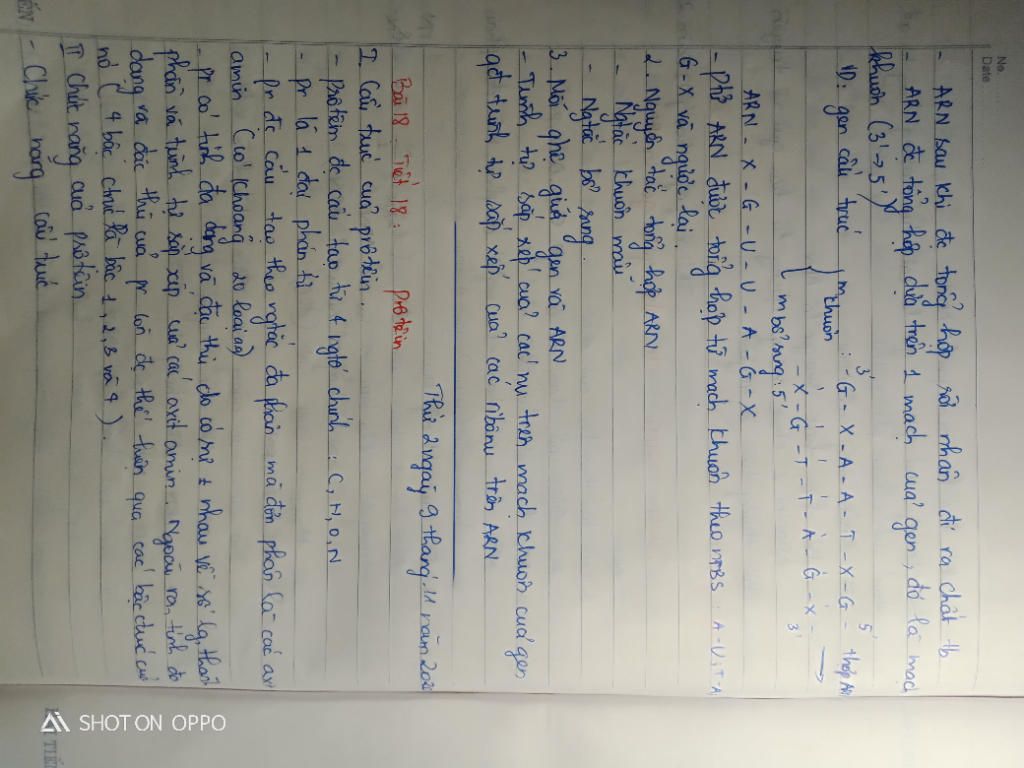 No.
Date
- ARN sau khi đc tổng hợp sẽ nhân đi ra chất tb
- ARN đc tổng hợp dựa trên 1 mạch của gen, đó là mạch
khuôn (3' → 5')
VD: gen cấu trúc { m khuôn : 3' -G-X-A-A-T-X-G- 5'
m bổ sung: 5' -X-G-T-T-A-G-X- 3' →
ARN - X - G - U - U - A - G - X
- ptử ARN được tổng hợp từ mạch khuôn theo NTBS: A-U, T-A
G-X và ngược lại.
2. Nguyên tắc tổng hợp ARN
- Ngtắc khuôn mẫu
- Ngtắc bổ sung.
3. Mối qhệ giữa gen và ARN
- Trình tự sắp xếp của các nu trên mạch khuôn của gen
qđ trình tự sắp xếp của các ribônu trên ARN
Thứ 2 ngày 9 tháng 11 năm 2020
Bài 18 - Tiết 18: Prôtêin
I. Cấu trúc của prôtêin.
- prôtêin đc cấu tạo từ 4 ngtố chính: C, H, O, N
- pr là 1 đại phân tử
- pr đc cấu tạo theo ngtắc đa phân mà đơn phân là các axit
amin (có khoảng 20 loại aa)
- pr có tính đa dạng và đặc thù do có sự ≠ nhau về số lg, thành
phần và trình tự sắp xếp của các axit amin. Ngoài ra, tính đa
dạng và đặc thù của pr còn đc thể hiện qua các bậc ctrúc của
nó (4 bậc ctrúc là bậc 1, 2, 3 và 4).
II Chức năng của prôtêin
- Chức năng cấu trúc
SHOT ON OPPO